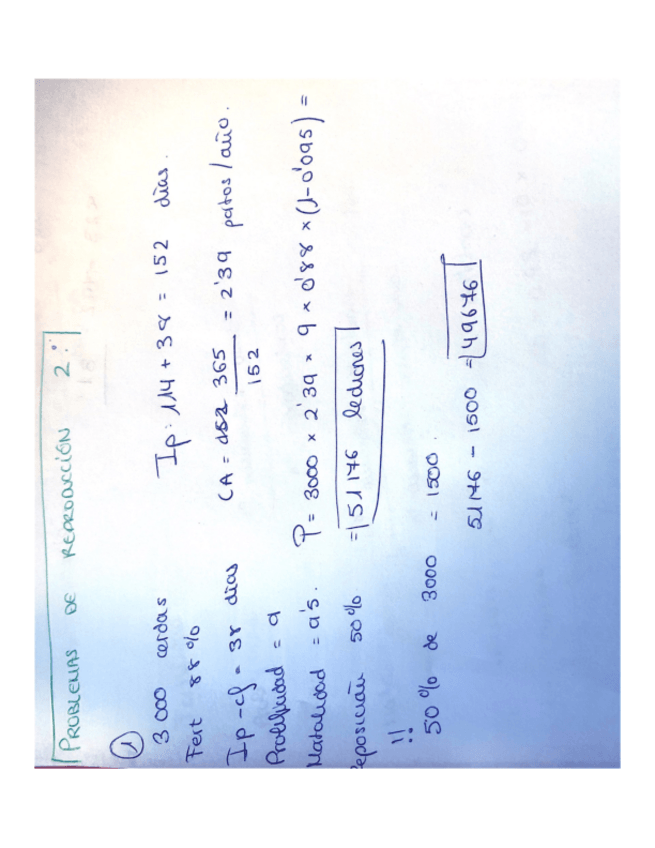 PROBLEMAS DE REPRODUCCIÓN 2:
①
3000 cerdas
Fert 88%
Ip-cf = 38 días
Prolificidad = 9
Matalidad = 9'5.
Reposición 50%
!!
50% de 3000 = 1500.
Ip: 114 + 38 = 152 días.
CA = 365 / 152 = 2'39 partos/año.
P = 3000 x 2'39 x 9 x 0'88 x (1-0'095) =
= 51176 lechones
51176 - 1500 = 49676